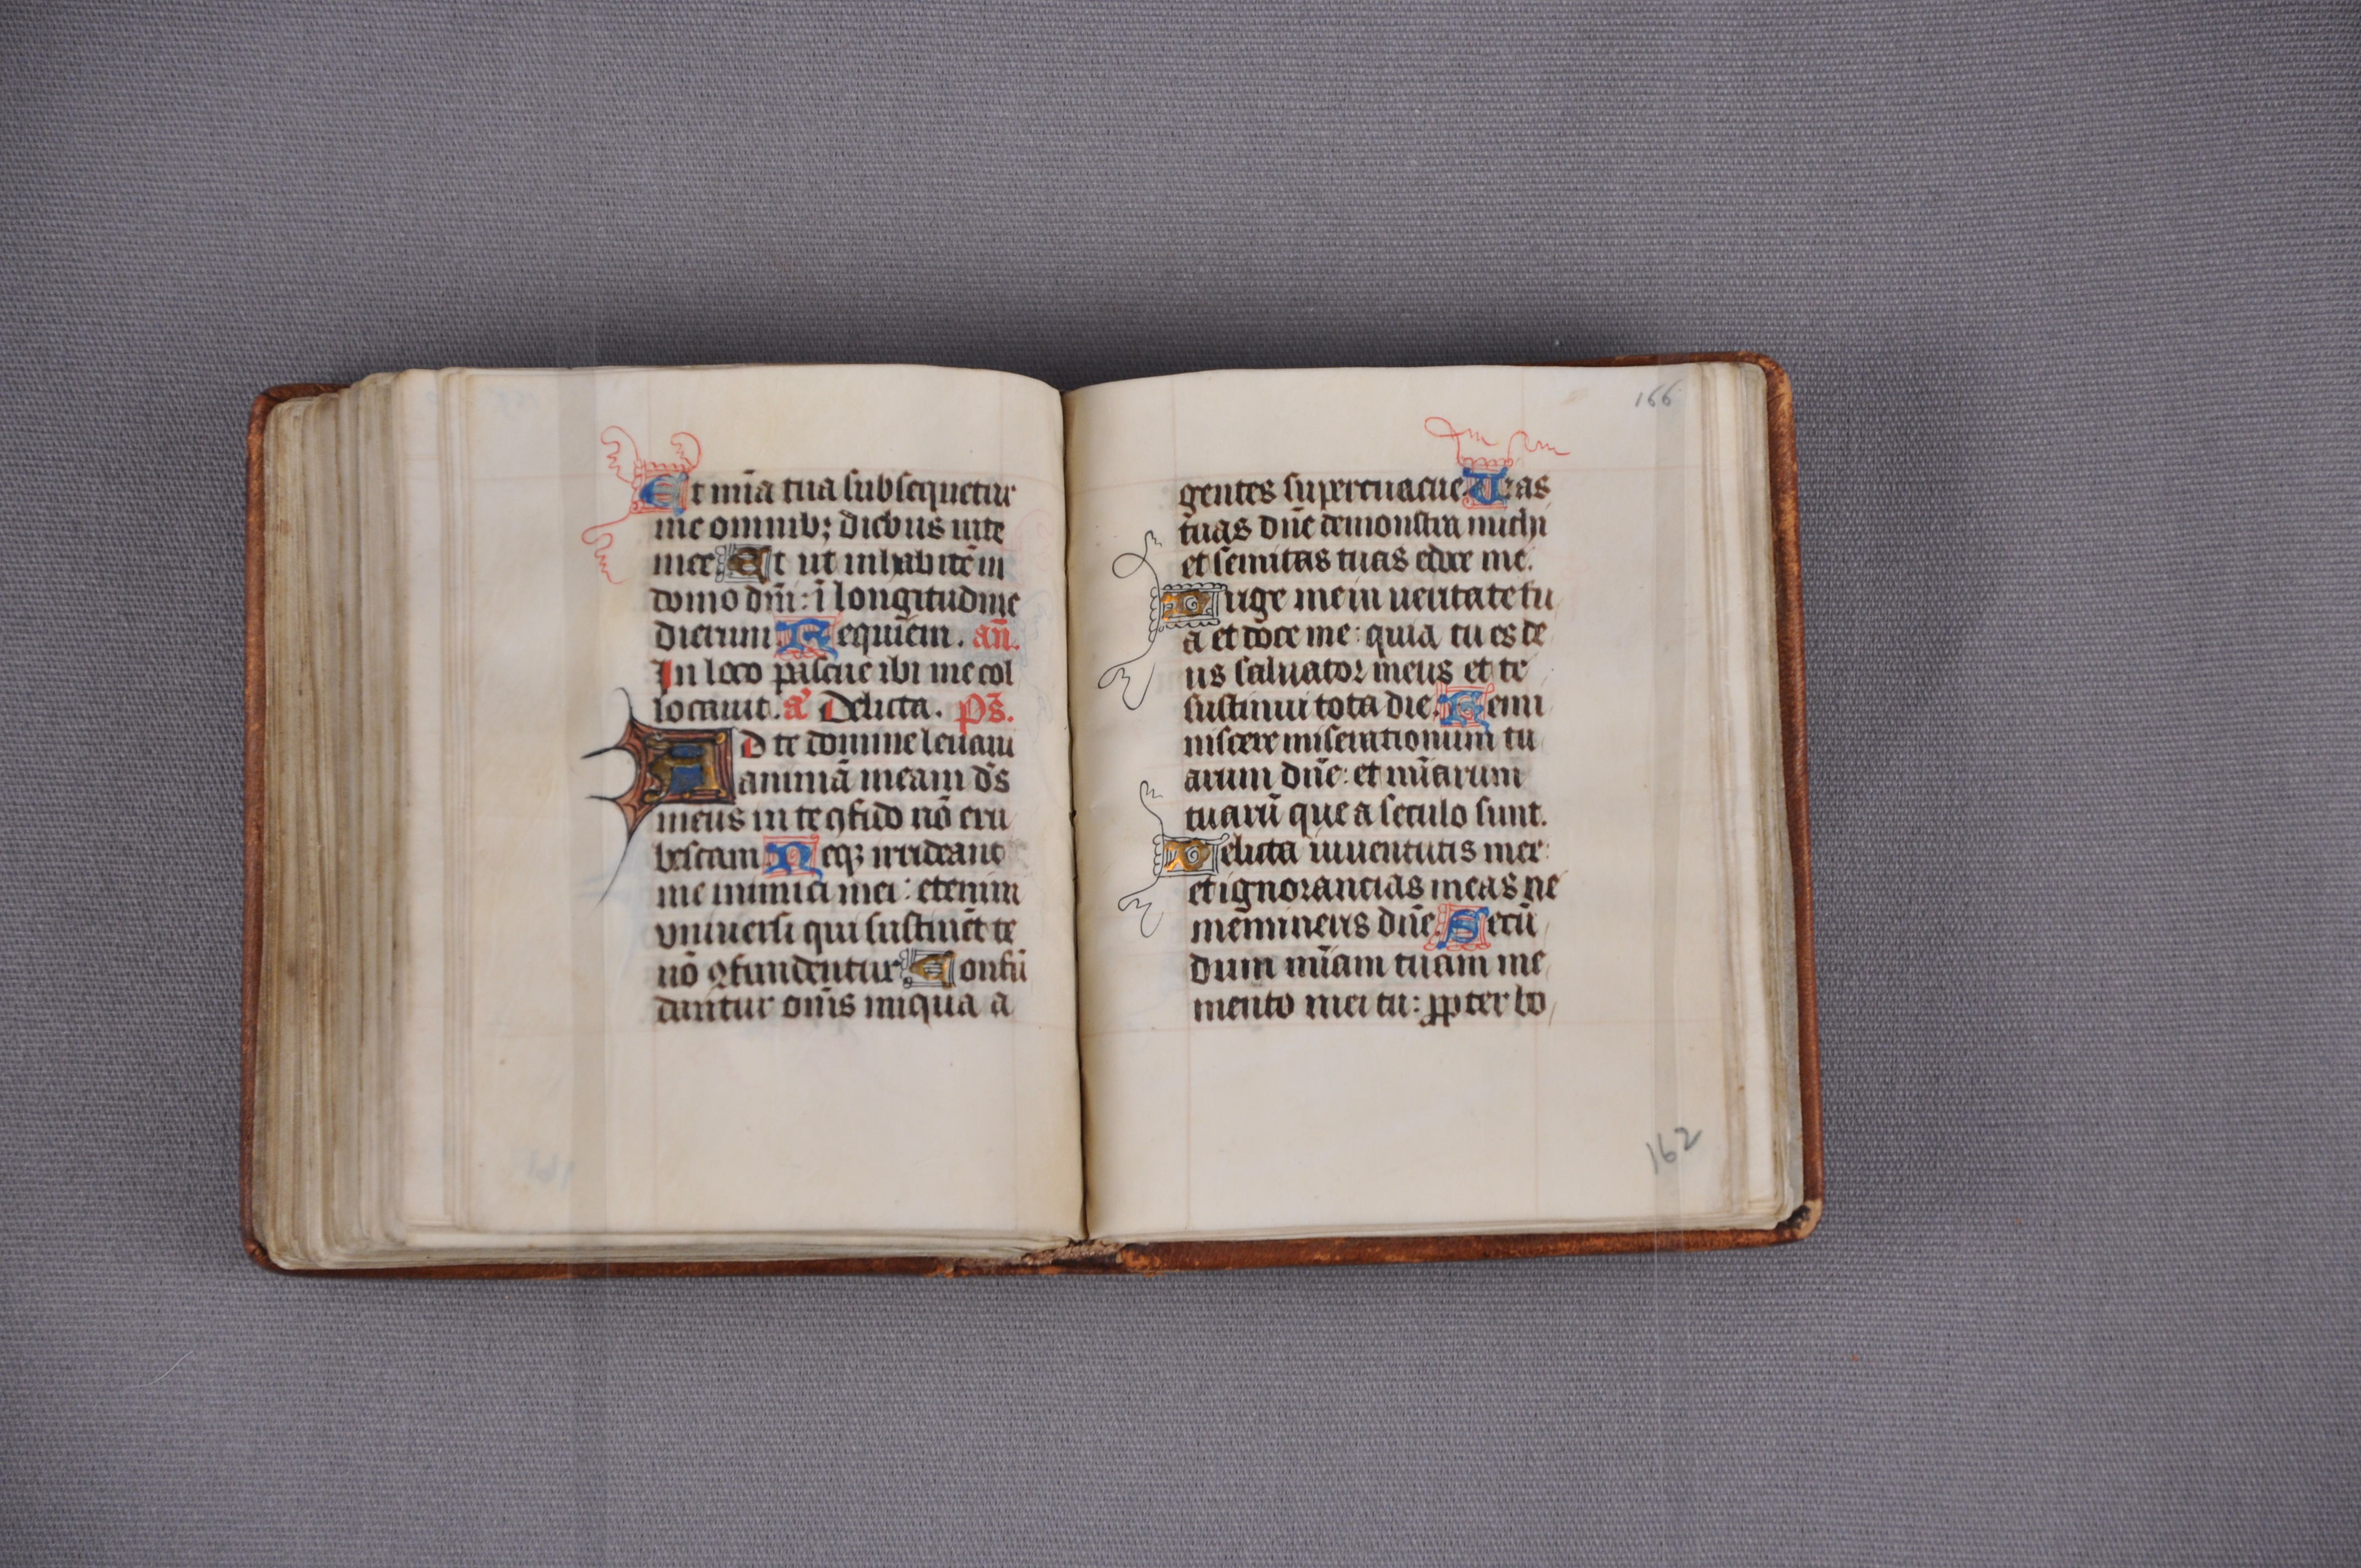 Et mīa tua subsequetur
me omnib; diebus uite
mee Et ut inhabitē in
domo dn̄i: ī longitudine
dierum Requiem. an̄.
In loco pascue ibi me col
locauit. a᷒ Delicta. p̄s.
AD te domine leuaui
animā meam ds̄
meus in te ꝯfido nō eru
bescam Neqꝫ irrideant
me inimici mei: etenim
vniuersi qui sustinēt te
nō ꝯfundentur. Confū
dantur om̄s iniqua a
166
gentes superuacue. Uias
tuas dn̄e demonstra michi
et semitas tuas edoce me.
Dirige me in ueritate tu
a et doce me: quia tu es de
us saluator meus et te
sustinui tota die. Remi
niscere miserationum tu
arum dn̄e: et mīarum
tuarū que a seculo sunt.
Delicta iuuentutis mee:
et ignorancias meas ne
memineris dn̄e. Secū
dum mīam tuam me
mento mei tu: ꝓpter bo
162